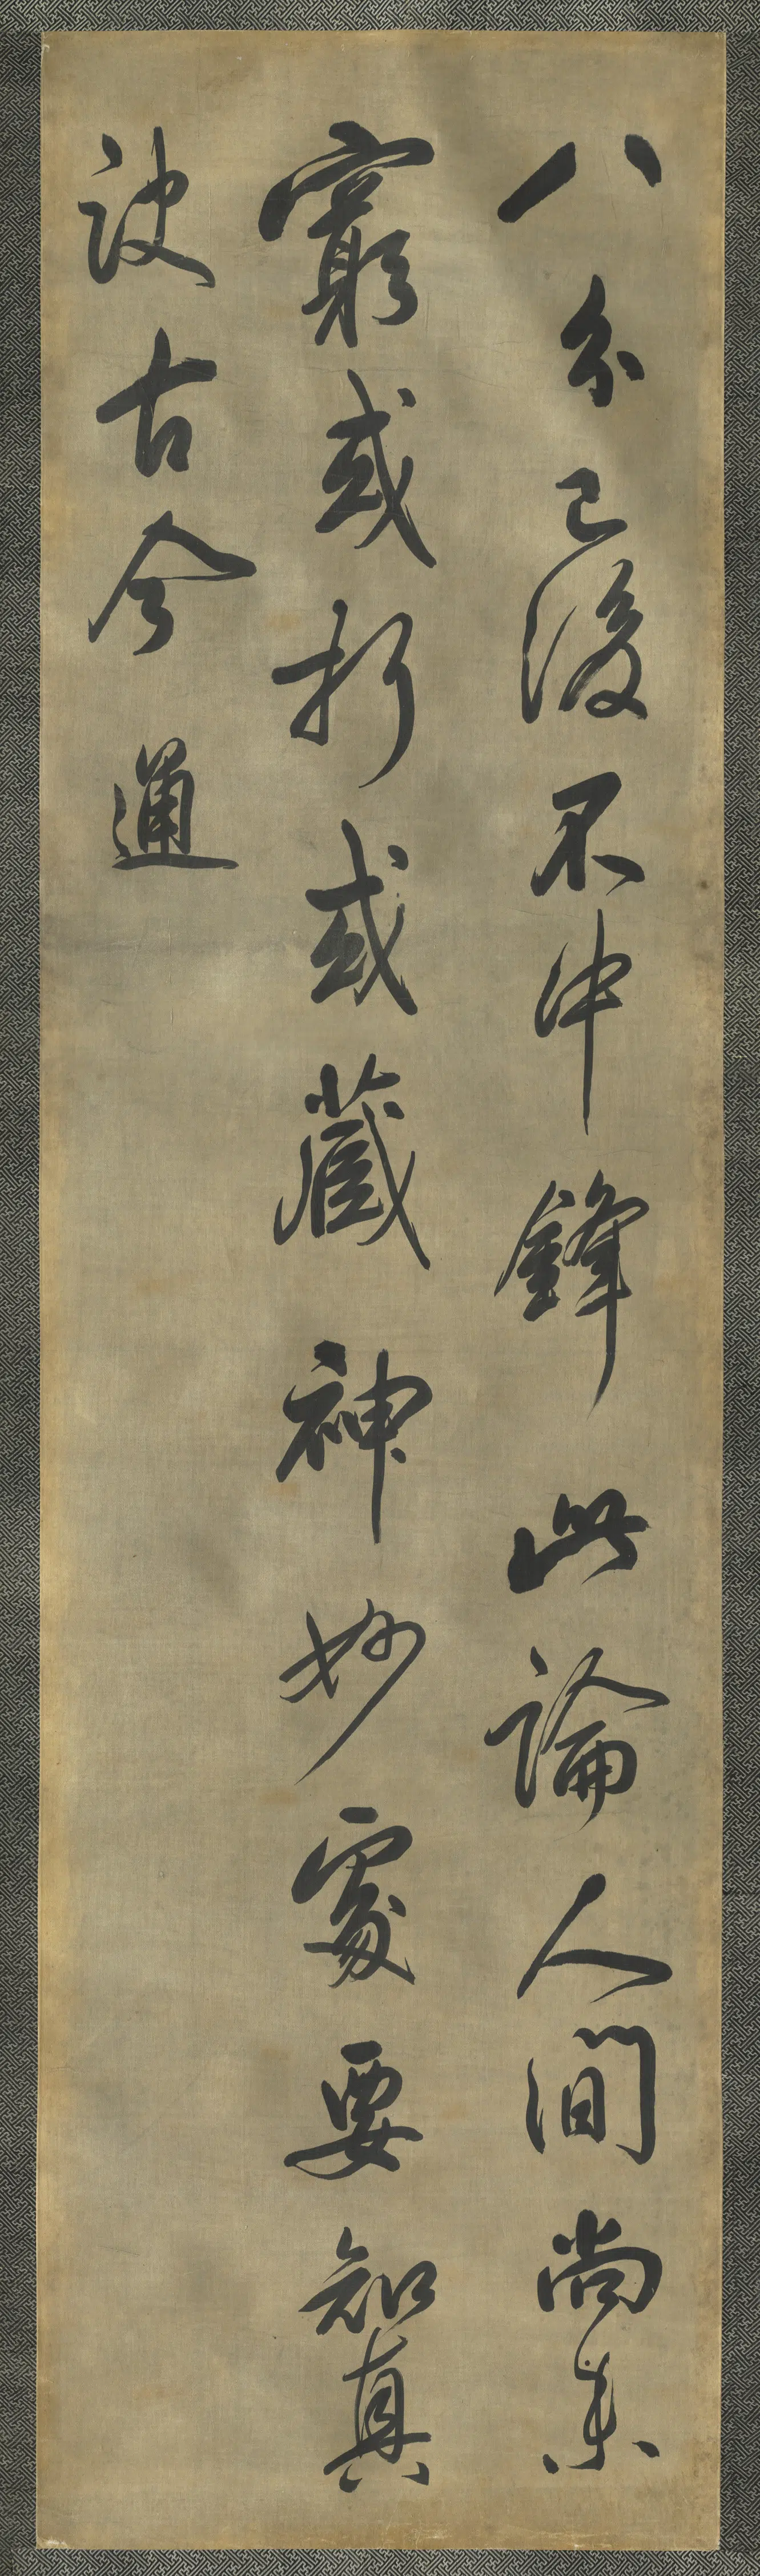 八分已後不中鋒此論人間尚未
窮或折或藏神妙處要知真
訣古今通